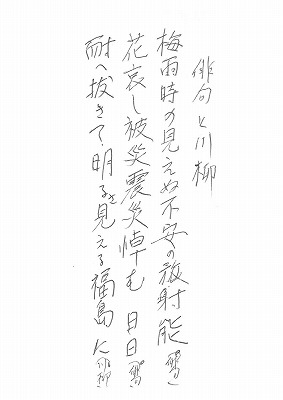 俳句と川柳
梅雨時の見えぬ不安の放射能
花哀し被災震災悼む日日
耐へ抜きて明るさ見える福島人(川柳)